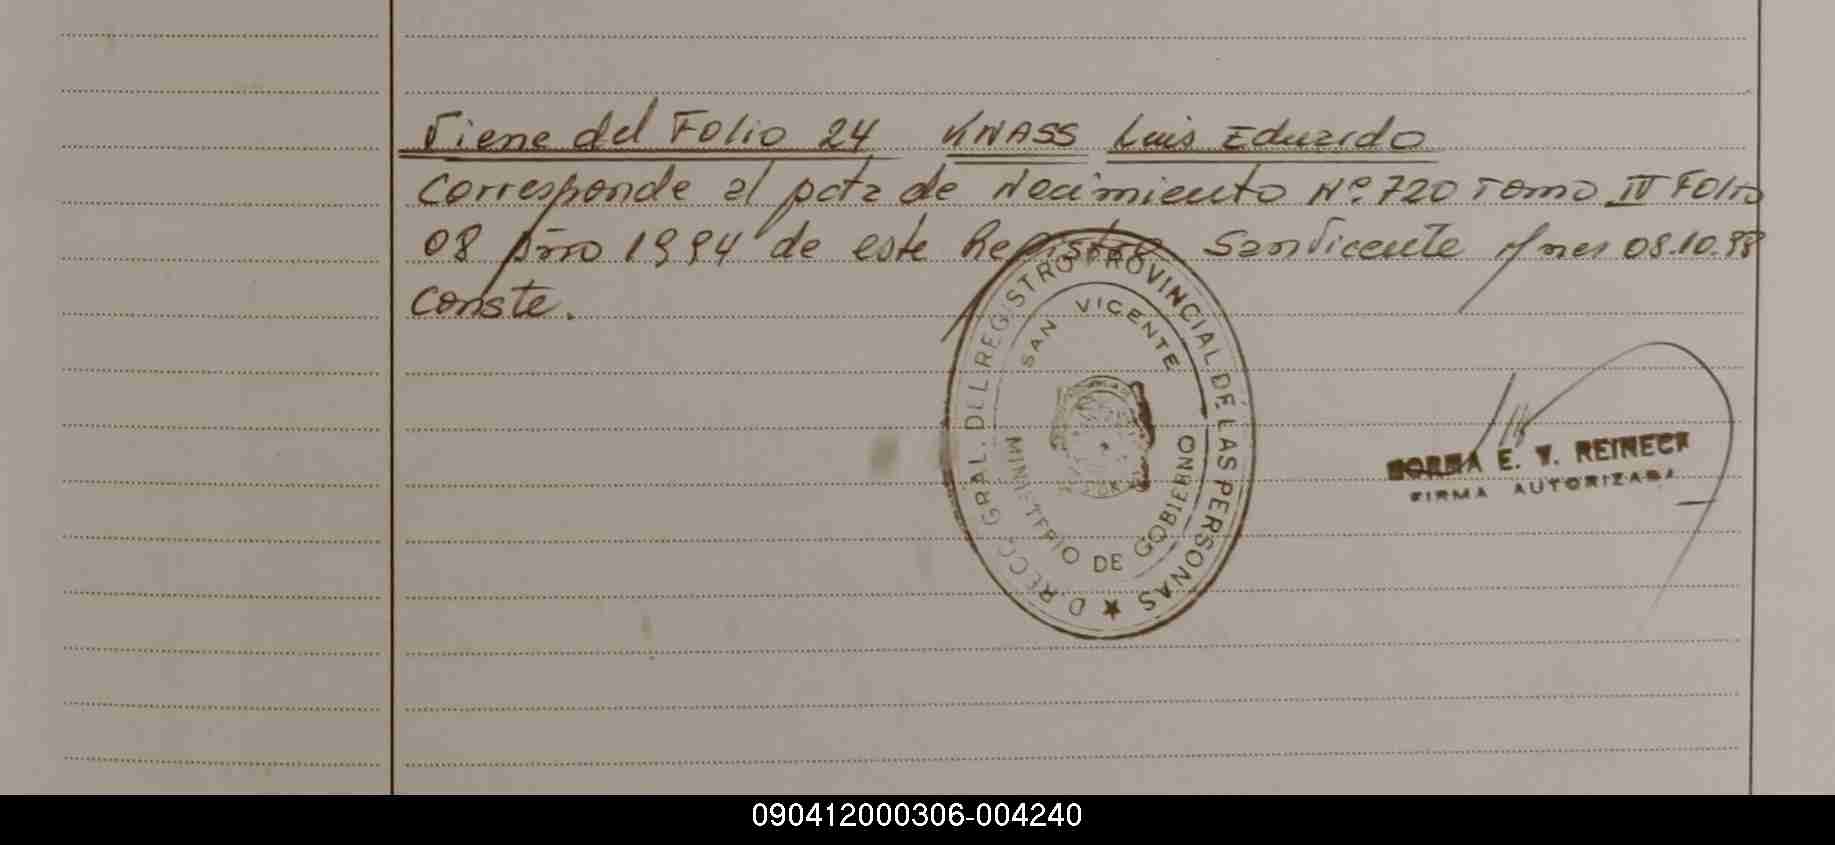 Viene del Folio 24 KNASS Luis Eduardo
Corresponde al Acta de Nacimiento Nº 720 Tomo IV Folio
08 Año 1994 de este Registro San Vicente Mnes 08.10.98
Conste.
DIRECC. GRAL. DEL REGISTRO PROVINCIAL DE LAS PERSONAS ★
SAN VICENTE
MINISTERIO DE GOBIERNO
NORMA E. V. REINECK
FIRMA AUTORIZADA
090412000306-004240